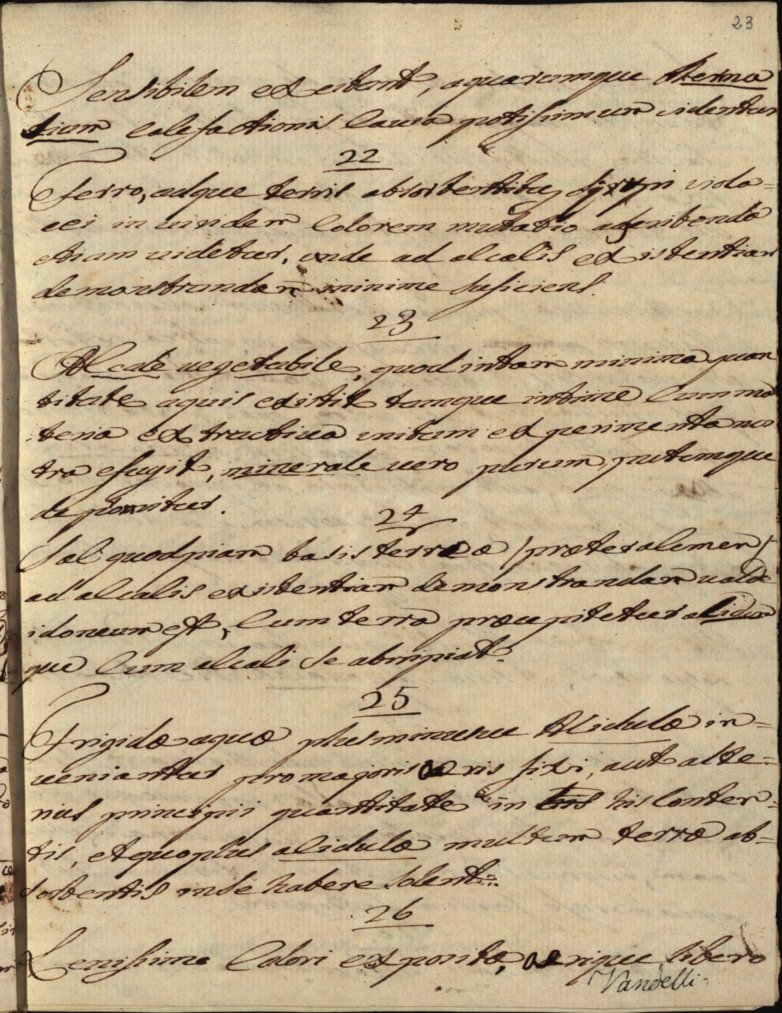 23
Sensibilem excitant, aquarumque therma
lium calefactionis causa potissimum videntur
22
Ferro, adque terris absorbentibus syrupi viola=
cei in viridem colorem mutatio adscribenda
etiam videtur, unde ad alcalis existentiam
demonstrandam minime suficiens.
23
Alcale vegetabile, quod in tam minima quan
titate aquis existit tamque intime cum ma
teria extractiva unitum experimenta nos
tra efugit, minerale vero purum, putumque
deponitur.
24
Sal quodpiam basis terreæ /præter alumen/
ad alcalis existentiam demonstrandam valde
idoneum est, cum terra præcipitetur acidum
que cum alcali se abripiat.
25
Frigidæ aquæ plus minusve acidulæ in=
veniantur pro majoris aeris fixi, aut alte=
rius principii quantitate in his conten=
tis, et quo plus acidulæ multum terræ ab=
sorbentis in se habere solent.
26
Lenissime calori expositæ, aerique libero
Vandelli